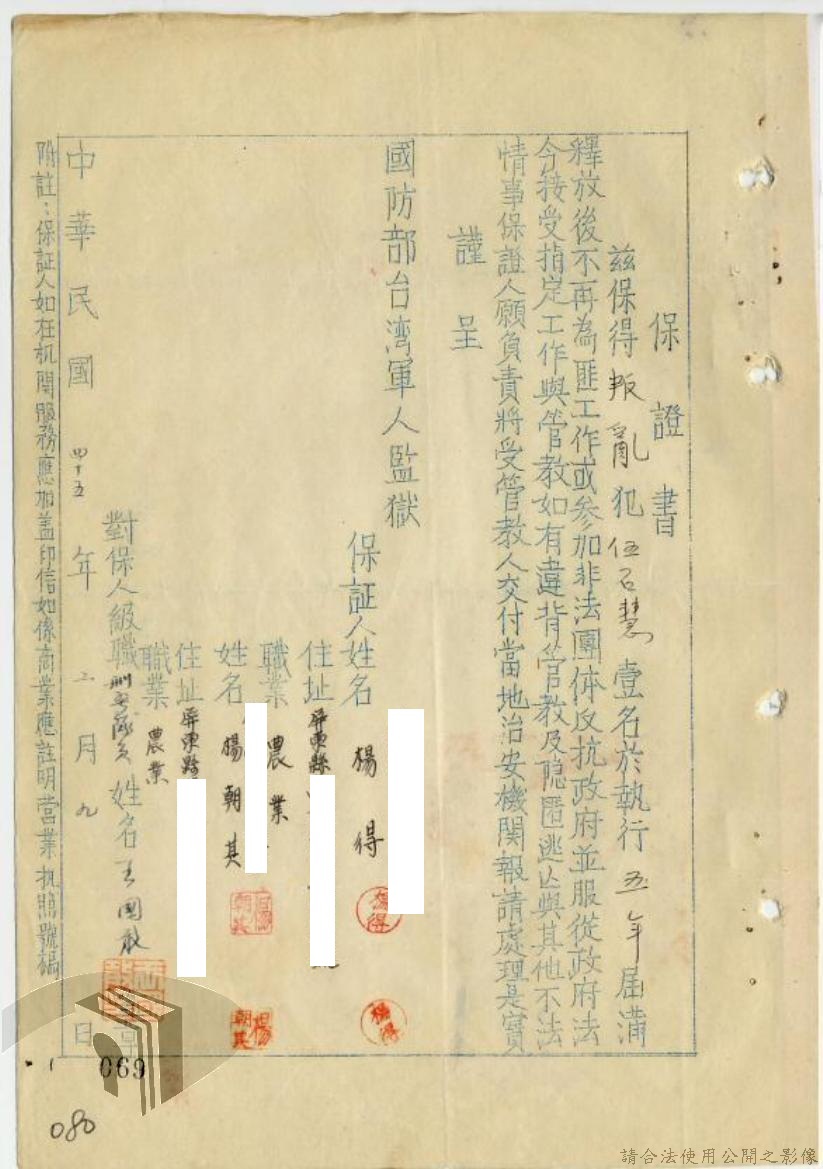 保證書
茲保得叛亂犯伍石慧壹名於執行五年屆滿
釋放後不再為匪工作或參加非法團体反抗政府並服從政府法
令接受指定工作與管教如有違背管教及隐匿逃亡與其他不法
情事保證人願負責將受管教人交付當地治安機関報請處理是實
謹呈
國防部台湾軍人監獄
保証人姓名 楊得
住址 屏東縣
職業 農業
姓名 楊朝其
住址 屏東縣
職業 農業
對保人級職 姓名 王國
章
中華民國四十五年二月九日
附註：保証人如在机関服務應加蓋印信如係商業應註明營業執照號稿
069
080
請合法使用公開之影像